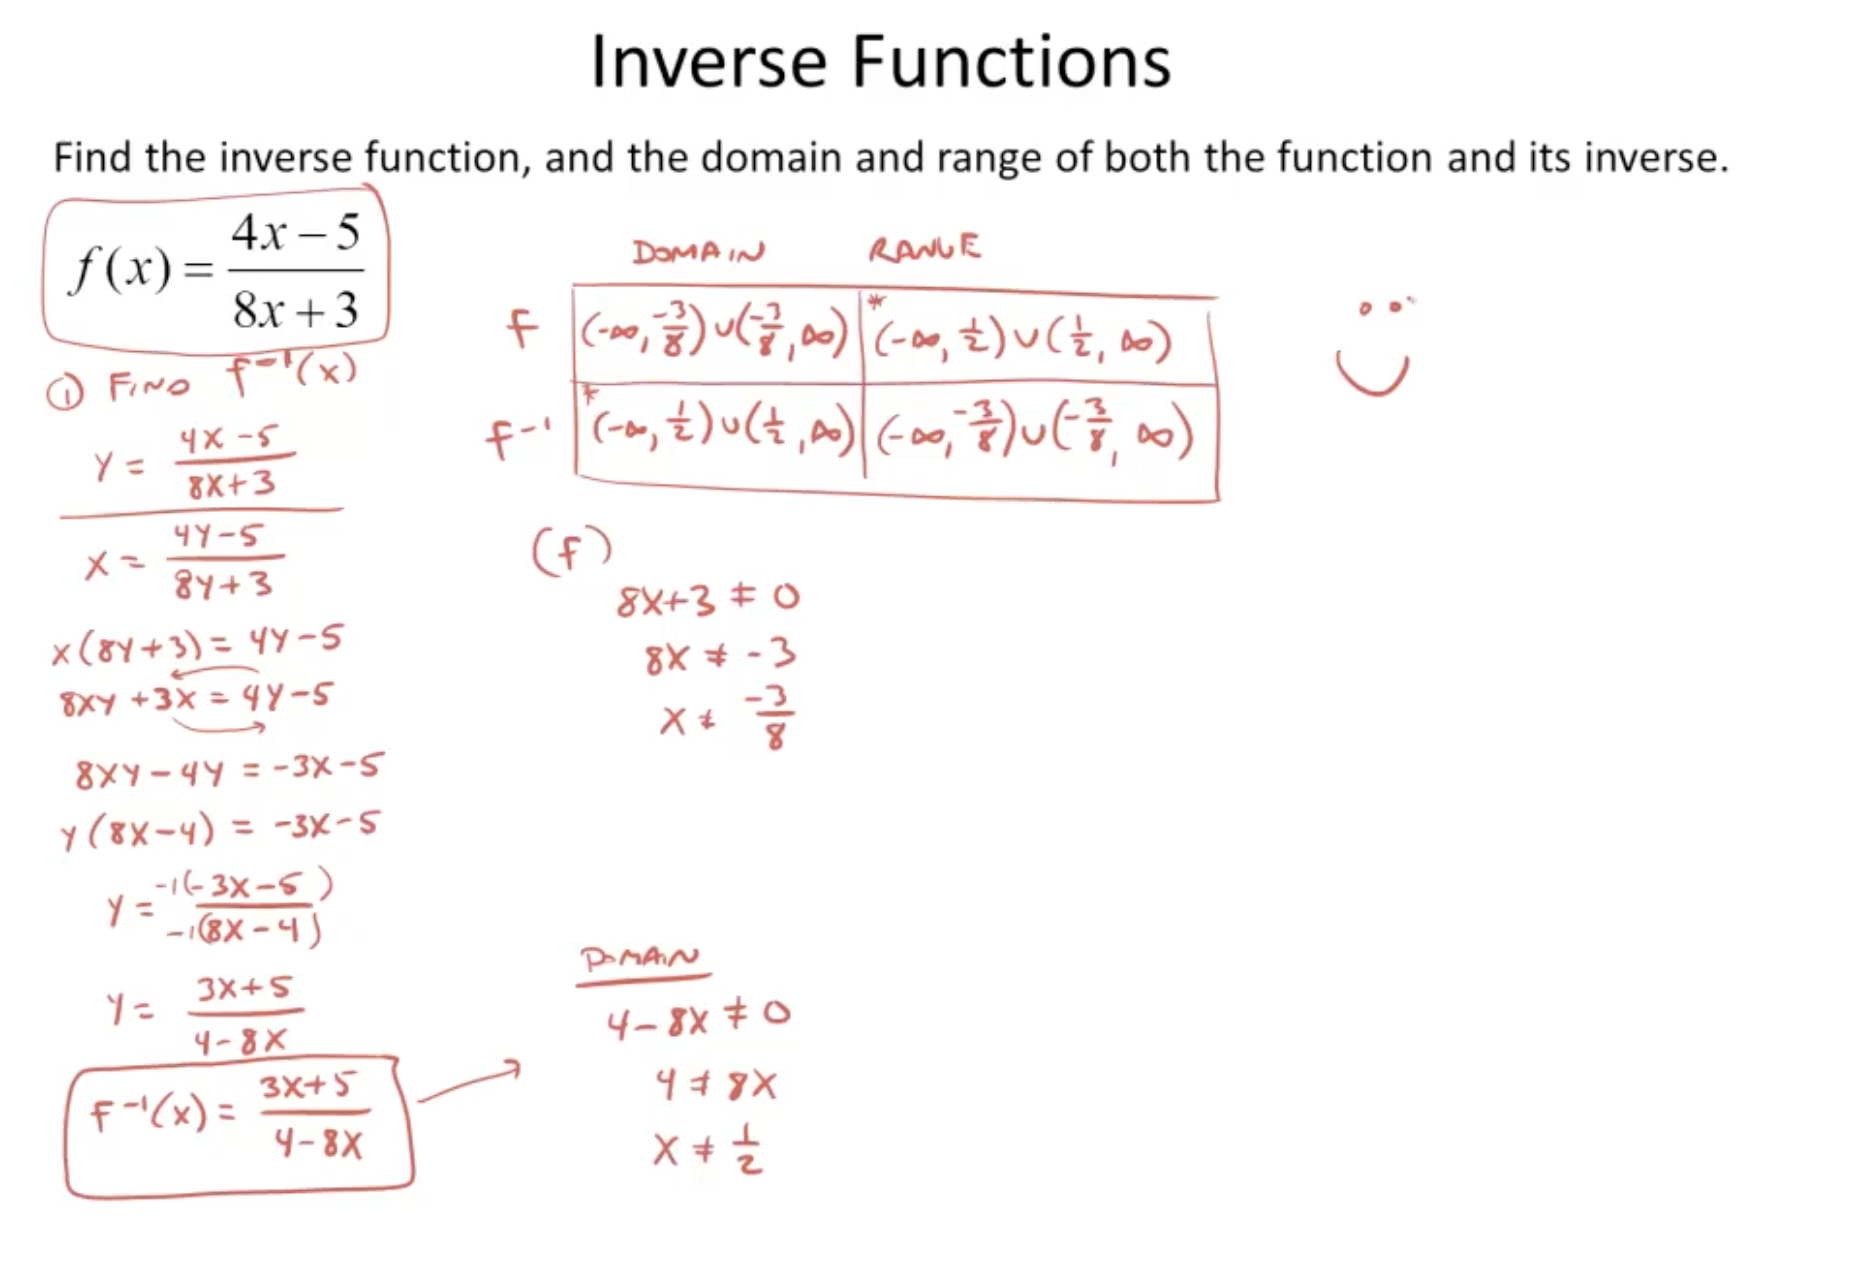 Inverse Functions
Find the inverse function, and the domain and range of both the function and its inverse.
f(x) = (4x − 5)/(8x + 3)
① FIND f⁻¹(x)
y = (4x − 5)/(8x + 3)
x = (4y − 5)/(8y + 3)
x(8y + 3) = 4y − 5
8xy + 3x = 4y − 5
8xy − 4y = −3x − 5
y(8x − 4) = −3x − 5
y = −1(−3x − 5)/−1(8x − 4)
y = (3x + 5)/(4 − 8x)
f⁻¹(x) = (3x + 5)/(4 − 8x)
DOMAIN RANGE
f (−∞, −3/8) ∪ (−3/8, ∞) * (−∞, 1/2) ∪ (1/2, ∞)
f⁻¹ * (−∞, 1/2) ∪ (1/2, ∞) (−∞, −3/8) ∪ (−3/8, ∞)
(f)
8x + 3 ≠ 0
8x ≠ −3
x ≠ −3/8
DOMAIN
4 − 8x ≠ 0
4 ≠ 8x
x ≠ 1/2